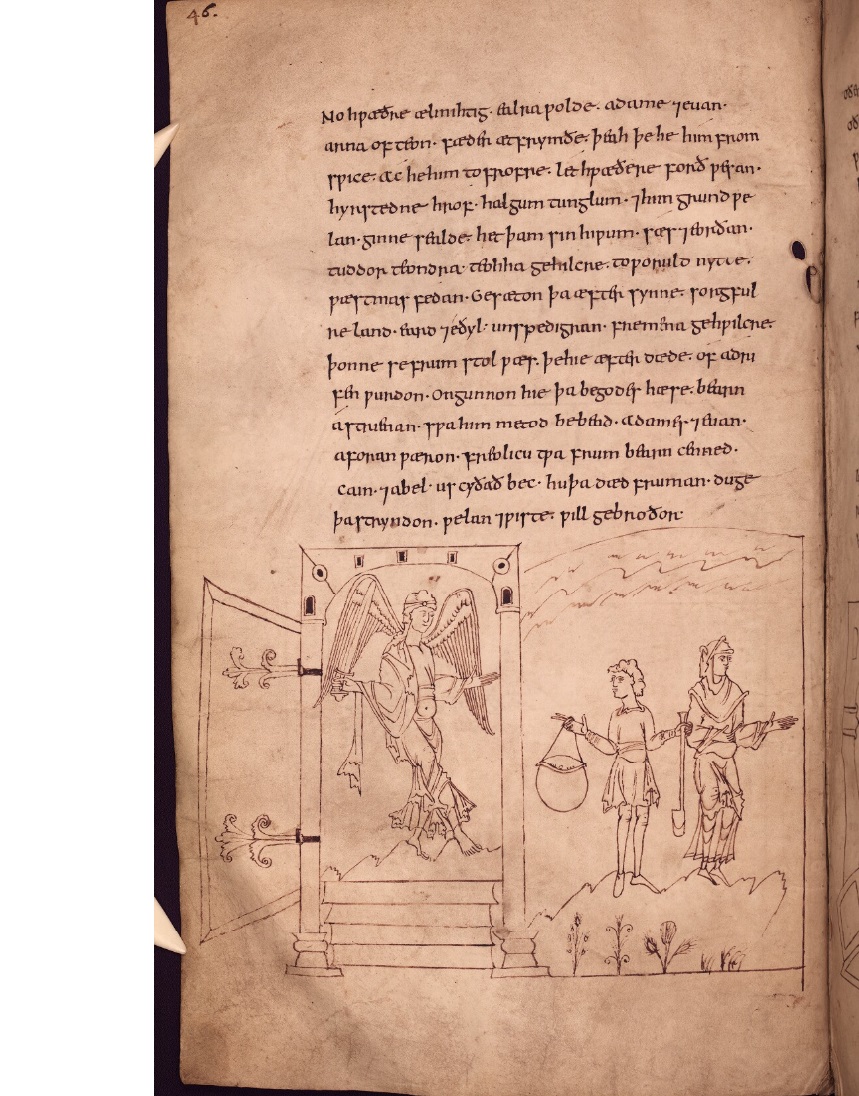 46.
No hƿæðre ælmihtig. ealra ƿolde. adame ⁊euan.
arna of teon. fæder æt frymðe. þeah þe he him from
sƿice. ac he him to frofre. let hƿæðere forð ƿesan.
hyrstedne hrof. halgum tunglum. ⁊him grund ƿe
lan. ginne sealde. het þam sin hiƿum. sæs ⁊eorðan.
tuddor teondra. teohha gehƿilcre. to ƿoruld nytte.
ƿæstmas fedan. Gesæton þa æfter synne. sorgful
re land. eard ⁊eðyl. unspedigran. fremena gehƿilcre.
þonne se frum stol ƿæs. þe hie æfter dæde. of adri
fen ƿurdon. Ongunnon hie þa be godes hæse. bearn
astrienan. sƿa him metod bebead. Adames ⁊euan.
aforan ƿæron. freolicu tƿa frum bearn cenned.
cain. ⁊abel. us cyðað bec. hu þa dæd fruman. duge
þa stryndon. ƿelan ⁊ƿiste. ƿill gebroðor.